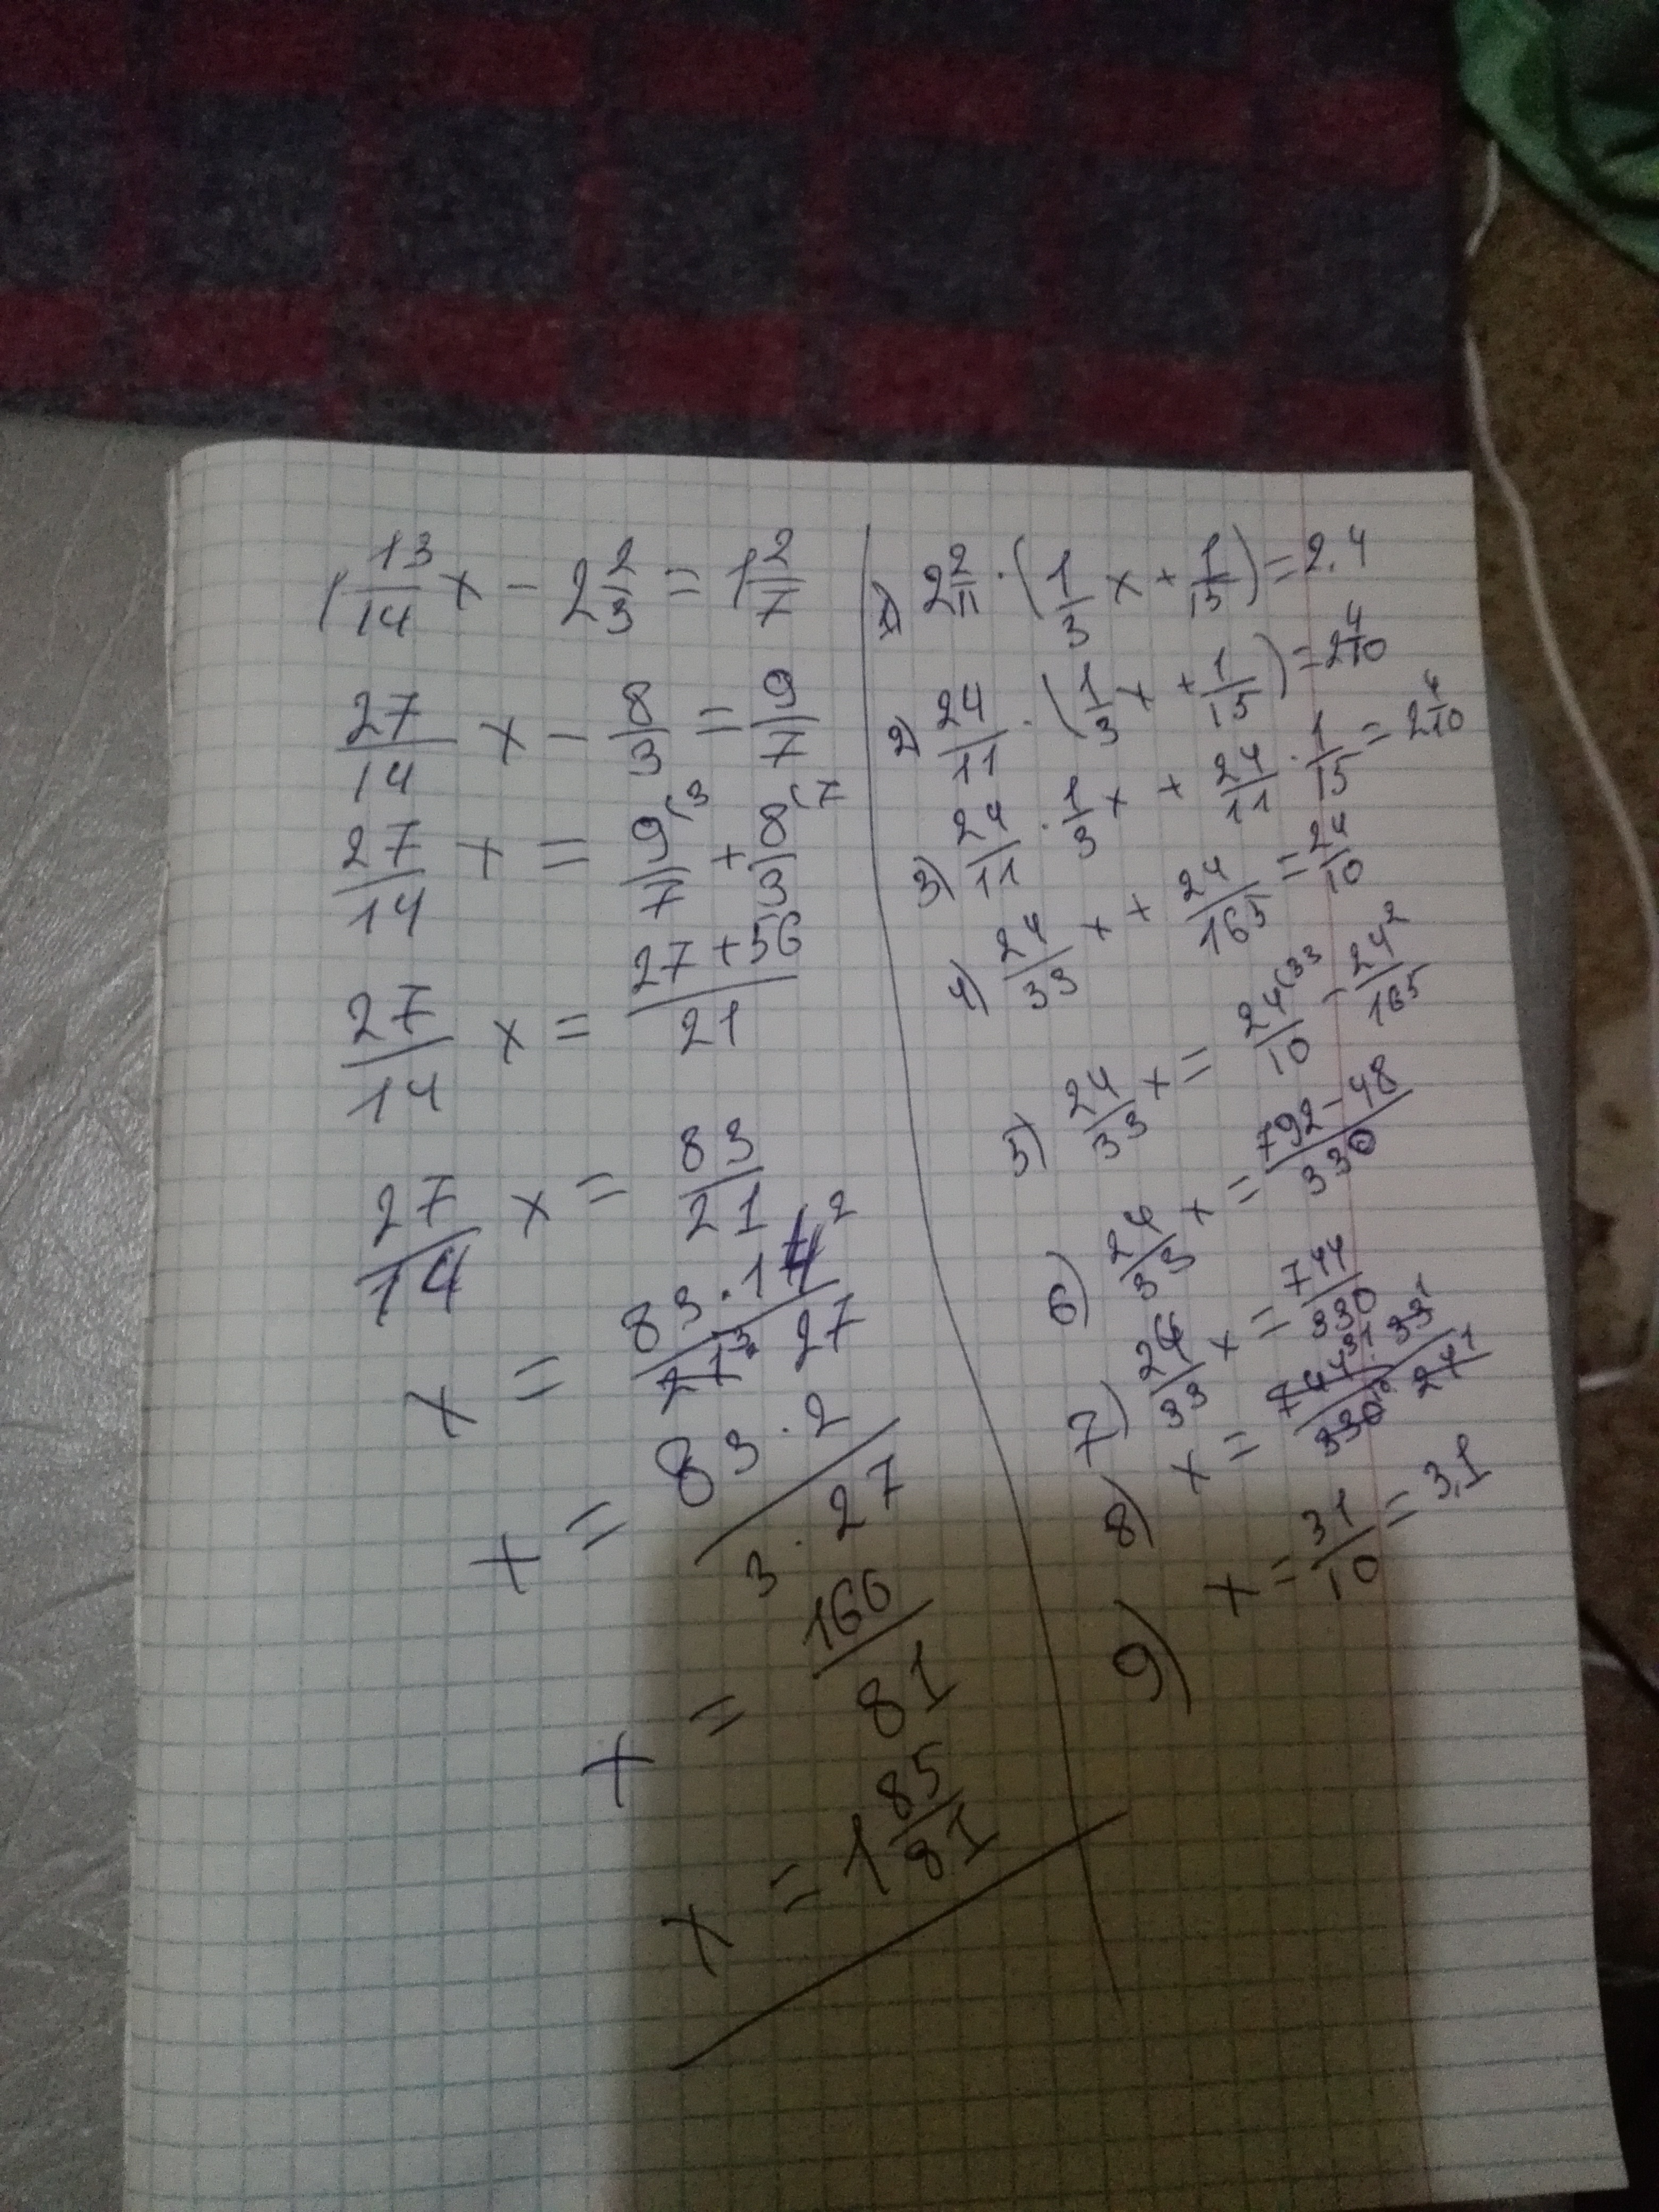 1 13/14 x - 2 2/3 = 1 2/7
27/14 x - 8/3 = 9/7
27/14 x = 9(3/7 + 8(7/3
27/14 x = 27+56/21
27/14 x = 83/21
x = 83·14²/21³·27
x = 83·2/3·27
x = 166/81
x = 1 85/81
1) 2 2/11 · (1/3 x + 1/15) = 2.4
2) 24/11 · (1/3 x + 1/15) = 2 4/10
3) 24/11 · 1/3 x + 24/11 · 1/15 = 2 4/10
4) 24/33 x + 24/165 = 24/10
5) 24/33 x = 24(33/10 - 24²/165
6) 24/33 x = 792-48/330
7) 24/33 x = 744/330
8) x = 744³¹·33¹/330¹⁰ 24¹
9) x = 31/10 = 3,1